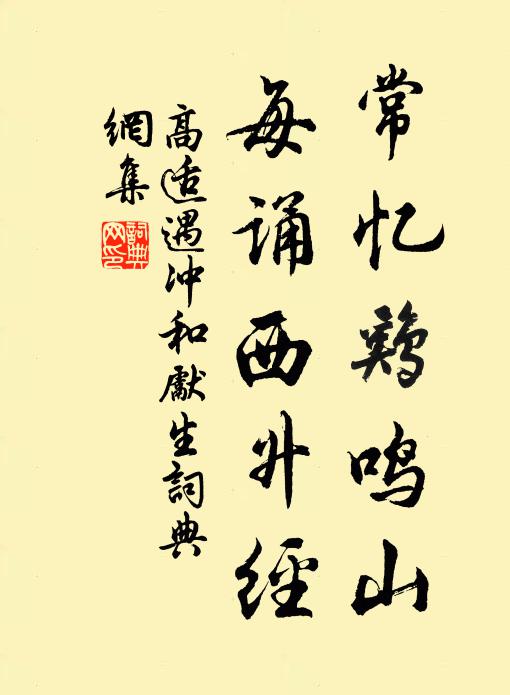 常忆鷄鸣山
每诵西升经
高适遇冲和獻生詞典
網集
詞典网印